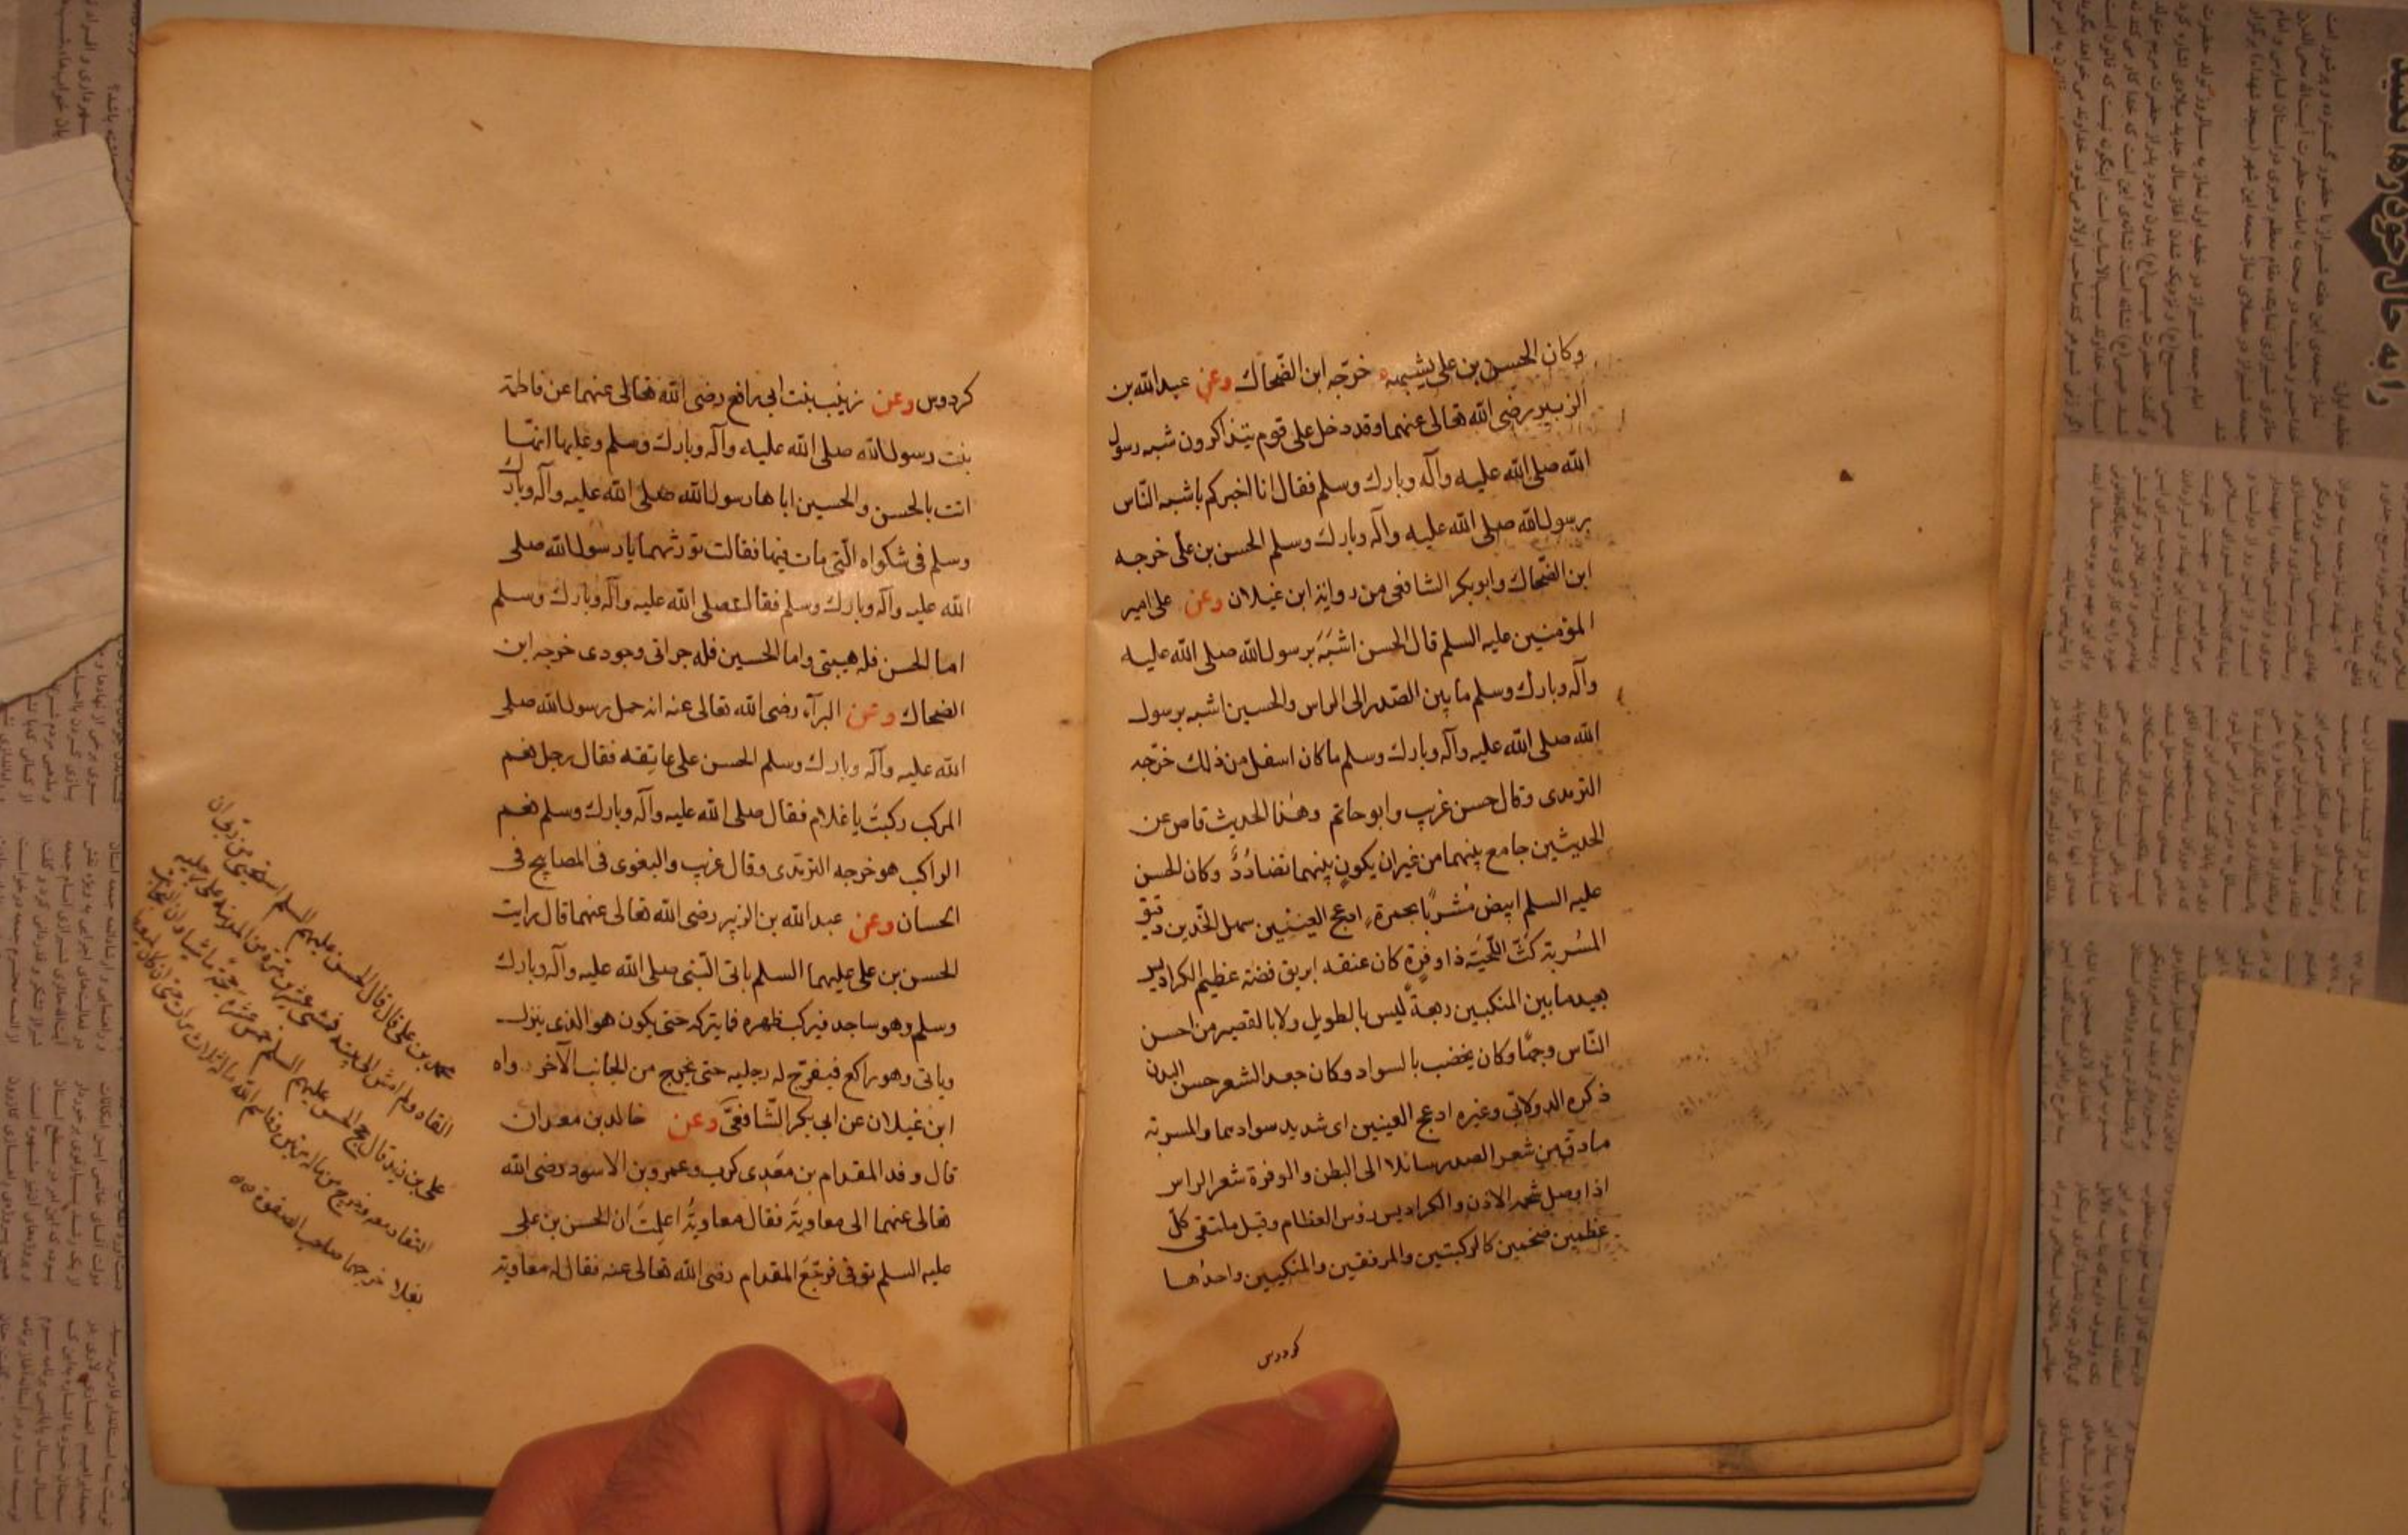 وكان الحسن بن علي يشبهه خرّجه ابن الضّحاك وعن عبدالله بن
الزبير رضى الله تعالى عنهما وقد دخل على قوم يتذاكرون شبه رسول
الله صلى الله عليه وآله وبارك وسلم فقال انا اخبركم باشبه النّاس
برسول الله صلى الله عليه وآله وبارك وسلم الحسن بن على خرجه
ابن الضّحاك وابوبكر الشافعى من رواية ابن غيلان وعن على امير
المؤمنين عليه السلم قال الحسن اشبَهَ برسول الله صلى الله عليه
وآله وبارك وسلم ما بين الصّدر الى الراس والحسين اشبه برسول
الله صلى الله عليه وآله وبارك وسلم ما كان اسفل من ذلك خرّجه
الترمدى وقال حسن غريب وابو حاتم وهذا الحديث قاض عن
الحديثين جامع بينهما من غير ان يكون بينهما تضادُدٌ وكان الحسن
عليه السلم ابيض مُشربًا بحمرة ادعج العينَيْن سهل الخدّين دقيق
المسُربة كثّ اللّحيَة ذا وفرة كان عنقه ابريق فضة عظيم الكراديس
بعيد ما بين المنكبين ربعةً ليس بالطويل ولا بالقصير من احسن
النّاس وجهًا وكان يخضب بالسواد وكان جعد الشعر حسن البدن
ذكره الدولابى وغيره ادعج العينين اى شديد سوادهما والمسربة
ما دقّ من شعر الصدر سائلا الى البطن والوفرة شعر الراس
اذا وصل شحمة الاذن والكراديس رؤس العظام وقيل ملتقى كلّ
عظمين ضخمين كالركبتين والمرفقين والمنكبين واحدُها
كردوس
كردوس وعن زينب بنت ابى رافع رضى الله تعالى عنهما عن فاطمة
بنت رسول الله صلى الله عليه وآله وبارك وسلم وعليها انهّا
اتت بالحسن والحسين اباها رسول الله صلى الله عليه وآله وبارك
وسلم فى شكواه الّتى مات فيها فقالت تورثهما يا رسول الله صلى
الله عليه وآله وبارك وسلم فقال صلى الله عليه وآله وبارك وسلم
اما الحسن فله هيبتى واما الحسين فله جراتى وجودى خرجه ابن
الضحاك وعن البرآء رضى الله تعالى عنه انه حمل رسول الله صلى
الله عليه وآله وبارك وسلم الحسن على عاتقه فقال رجل نعم
المركب ركبتَ يا غلام فقال صلى الله عليه وآله وبارك وسلم نعم
الراكب هو خرجه الترمدى وقال غريب والبغوى فى المصابيح فى
الحسان وعن عبدالله بن الزبير رضى الله تعالى عنهما قال رايت
الحسن بن على عليهما السلم ياتى النّبى صلى الله عليه وآله وبارك
وسلم وهو ساجد فيركب ظهره فما يتركه حتى يكون هو الذى ينزل
وياتى وهو راكع فيفرّج له رجليه حتى يخرج من الجانب الآخر رواه
ابن غيلان عن ابى بكر الشّافعىّ وعن خالد بن معدان
قال وفد المقدام بن مَعْدى كرب وعمرو بن الاسود رضى الله
تعالى عنهما الى معاويَة فقال معاويةُ اعلمتَ ان الحسن بن على
عليه السلم توفى فرجّعَ المقدام رضى الله تعالى عنه فقال له معاوية
محمد بن على قال قال الحسن عليهم السلم انى استحيى من ربى ان
القاه ولم امش الى بيته فمشى عشرين مرة من المدينة على رجليه
على بن زيد قال حج الحسن عليهم السلم خمس عشرة حجّة ماشيا وان النجائب
لتقاد معه وخرج من ماله مرتين وقاسم الله ماله ثلاث مرات حتى ان كان ليعطى
نعلا خرجهما صاحب الصفوة